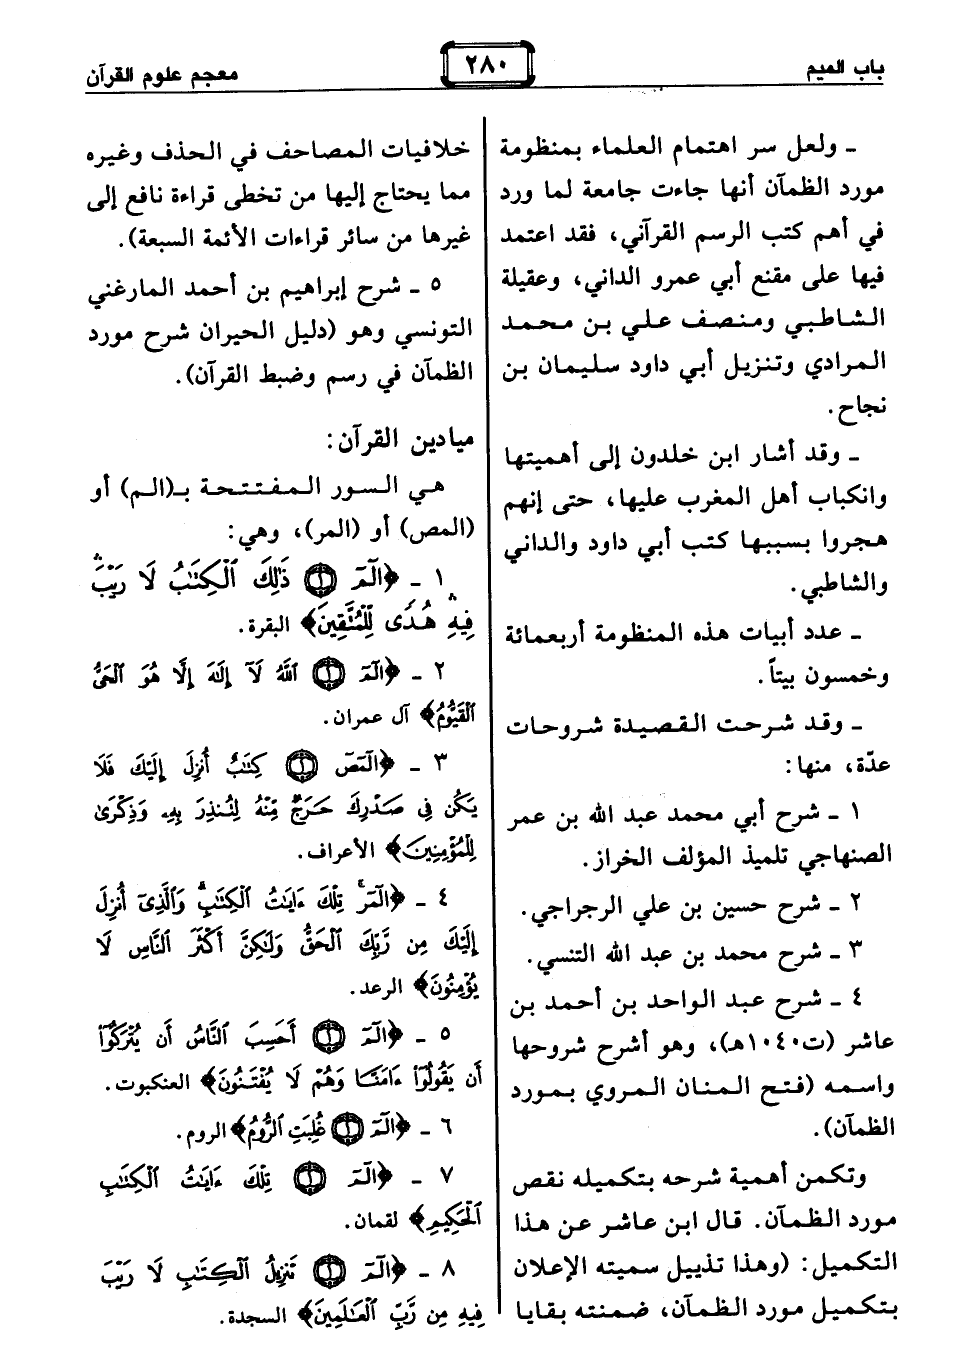 باب الميم
٢٨٠
معجم علوم القرآن
ـ ولعل سر اهتمام العلماء بمنظومة
مورد الظمآن أنها جاءت جامعة لما ورد
في أهم كتب الرسم القرآني، فقد اعتمد
فيها على مقنع أبي عمرو الداني، وعقيلة
الشاطبي ومنصف علي بن محمد
المرادي وتنزيل أبي داود سليمان بن
نجاح.
ـ وقد أشار ابن خلدون إلى أهميتها
وانكباب أهل المغرب عليها، حتى إنهم
هجروا بسببها كتب أبي داود والداني
والشاطبي.
ـ عدد أبيات هذه المنظومة أربعمائة
وخمسون بيتاً.
ـ وقد شرحت القصيدة شروحات
عدّة، منها:
١ ـ شرح أبي محمد عبد الله بن عمر
الصنهاجي تلميذ المؤلف الخراز.
٢ ـ شرح حسين بن علي الرجراجي.
٣ ـ شرح محمد بن عبد الله التنسي.
٤ ـ شرح عبد الواحد بن أحمد بن
عاشر (ت١٠٤٠هـ)، وهو أشرح شروحها
واسمه (فتح المنان المروي بمورد
الظمآن).
وتكمن أهمية شرحه بتكميله نقص
مورد الظمآن. قال ابن عاشر عن هذا
التكميل: (وهذا تذييل سميته الإعلان
بتكميل مورد الظمآن، ضمنته بقايا
خلافيات المصاحف في الحذف وغيره
مما يحتاج إليها من تخطى قراءة نافع إلى
غيرها من سائر قراءات الأئمة السبعة).
٥ ـ شرح إبراهيم بن أحمد المارغني
التونسي وهو (دليل الحيران شرح مورد
الظمآن في رسم وضبط القرآن).
ميادين القرآن:
هي السور المفتتحة بـ(الم) أو
(المص) أو (المر)، وهي:
١ ـ ﴿الٓمٓ ۝١ ذَٰلِكَ ٱلْكِتَٰبُ لَا رَيْبَۛ
فِيهِۛ هُدًى لِّلْمُتَّقِينَ﴾ البقرة.
٢ ـ ﴿الٓمٓ ۝١ ٱللَّهُ لَآ إِلَٰهَ إِلَّا هُوَ ٱلْحَىُّ
ٱلْقَيُّومُ﴾ آل عمران.
٣ ـ ﴿الٓمٓصٓ ۝١ كِتَٰبٌ أُنزِلَ إِلَيْكَ فَلَا
يَكُن فِى صَدْرِكَ حَرَجٌ مِّنْهُ لِتُنذِرَ بِهِۦ وَذِكْرَىٰ
لِلْمُؤْمِنِينَ﴾ الأعراف.
٤ ـ ﴿الٓمٓرۚ تِلْكَ ءَايَٰتُ ٱلْكِتَٰبِۗ وَٱلَّذِىٓ أُنزِلَ
إِلَيْكَ مِن رَّبِّكَ ٱلْحَقُّ وَلَٰكِنَّ أَكْثَرَ ٱلنَّاسِ لَا
يُؤْمِنُونَ﴾ الرعد.
٥ ـ ﴿الٓمٓ ۝١ أَحَسِبَ ٱلنَّاسُ أَن يُتْرَكُوٓا۟
أَن يَقُولُوٓا۟ ءَامَنَّا وَهُمْ لَا يُفْتَنُونَ﴾ العنكبوت.
٦ ـ ﴿الٓمٓ ۝١ غُلِبَتِ ٱلرُّومُ﴾ الروم.
٧ ـ ﴿الٓمٓ ۝١ تِلْكَ ءَايَٰتُ ٱلْكِتَٰبِ
ٱلْحَكِيمِ﴾ لقمان.
٨ ـ ﴿الٓمٓ ۝١ تَنزِيلُ ٱلْكِتَٰبِ لَا رَيْبَ
فِيهِ مِن رَّبِّ ٱلْعَٰلَمِينَ﴾ السجدة.